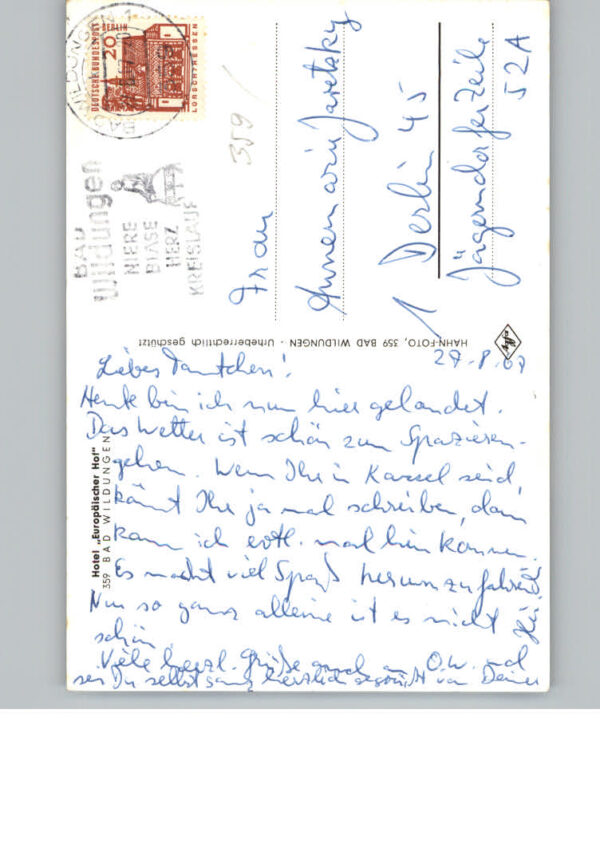 BAD WILDUNGEN 1
DEUTSCHE BUNDESPOST BERLIN
20
LORSCH/HESSEN
BAD
Wildungen
NIERE
BLASE
HERZ
KREISLAUF
359
Frau
Annemarie Jaretzky
1 Berlin 45
Jägerndorfer Zeile
52A
HAHN-FOTO, 359 BAD WILDUNGEN - Urheberrechtlich geschützt
Agfa
Hotel „Europäischer Hof"
359 BAD WILDUNGEN
27.8.67
Liebes Tantchen!
Heute bin ich nun hier gelandet.
Das Wetter ist schön zum Spazieren-
gehen. Wenn Ihr in Kassel seid,
könnt Ihr ja mal schreiben, dann
kann ich evtl. mal hin kommen.
Es macht viel Spaß herumzufahren
Nur so ganz alleine ist es nicht
schön.
Viele herzl. Grüße auch an O.W. und
sei Du selbst ganz herzlich gegrüßt von Deiner